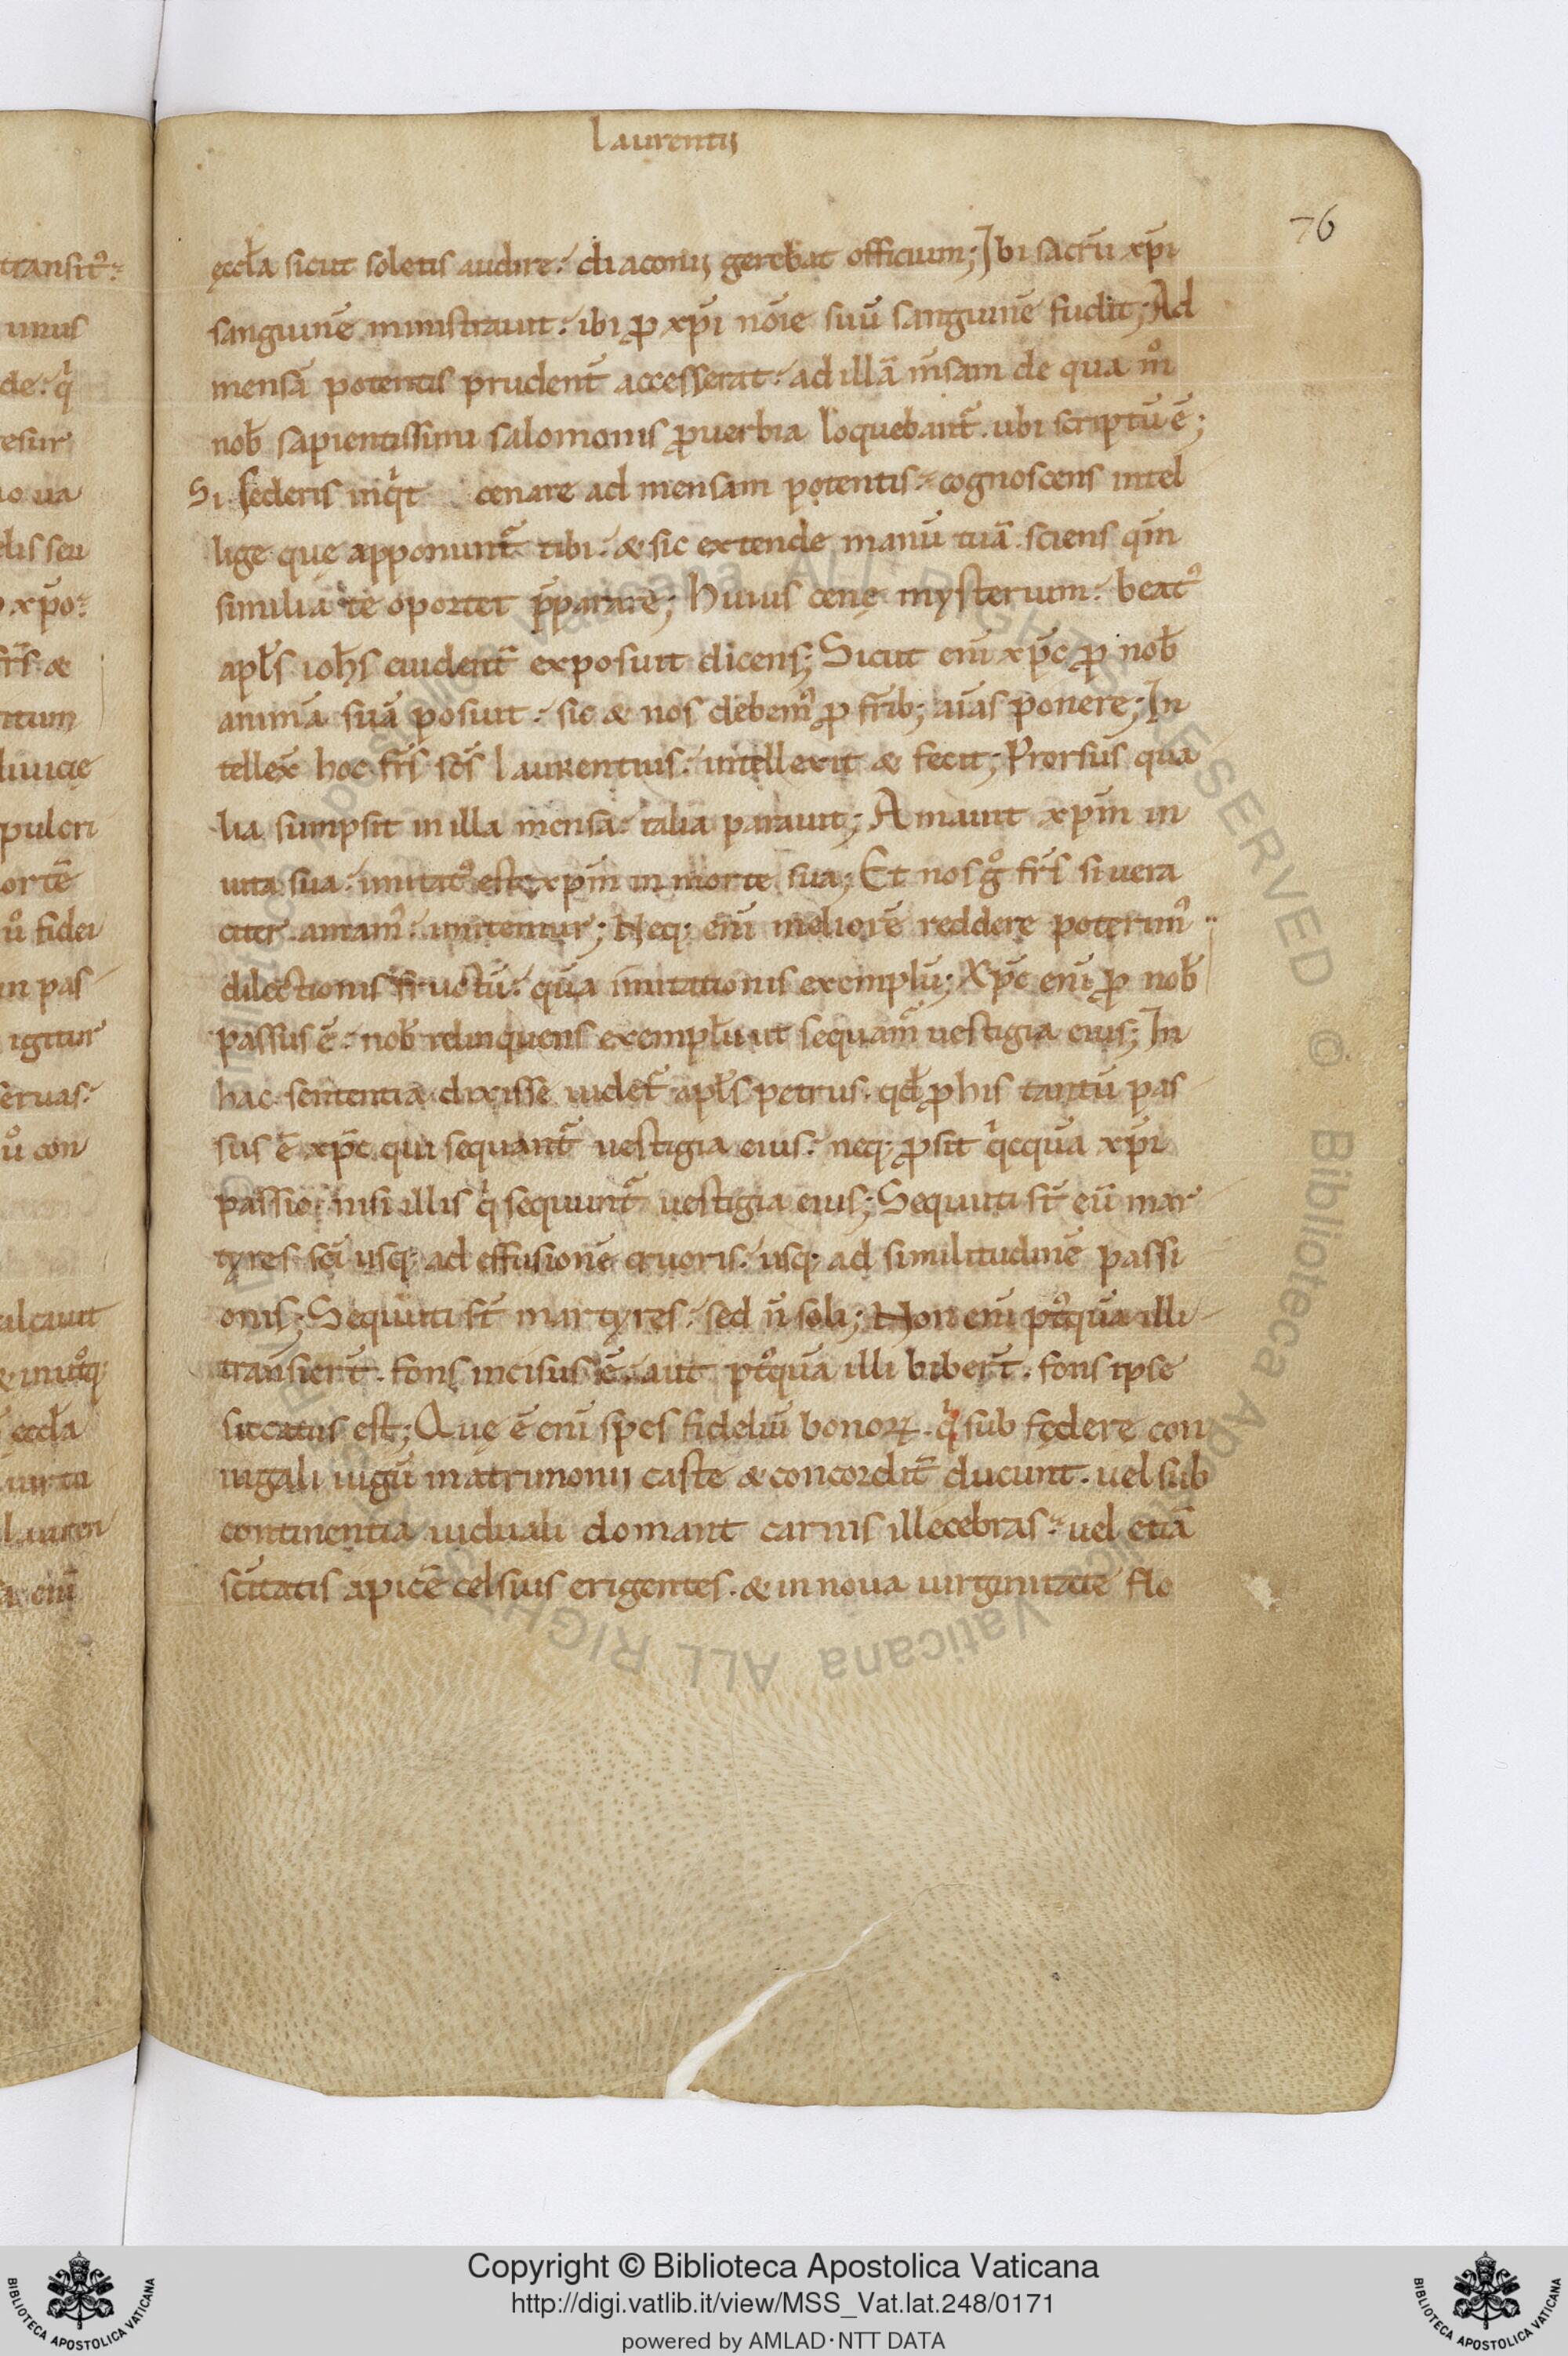 Laurentij
76
transit᷒:
unus
de: qͥ
resur
io ua
elis seu
xp̄o:
fr̄s &
pulcri
ortē
ū fidei
in pas
igitur
eruas:
ū con
eccl̄a
eni̅
ęccl̄a sicut soletis audire: diaconij gerebat officium; Ibi sacrū xp̄i
sanguinē ministrauit: ibi ꝓ xp̄i nōīe suū sanguinē fudit; Ad
mensā potentis prudent̄ accesserat: ad illā m̄sam de qua mͦ
nob̄ sapientissimi salomonis ꝓuerbia loquebant̄. ubi scriptū ē;
Si sederis inqͥt cenare ad mensam potentis: cognoscens intel
lige que apponunt̄ tibi: & sic extende manū tuā. sciens qm̄
similia te oportet p̄parare; Huius cenę mysterium: beat᷒
apl̄s ioh̄s euident̄ exposuit dicens; Sicut eni̅ xp̄c ꝓ nob̄
animā suā posuit: sic & nos debem᷒ ꝓ frīb; aīas ponere; In
tellex̄ hoc fr̄s sc̄s laurentius: intellexit & fecit; Prorsus qua
lia sumpsit in illa mensa: talia parauit; Amauit xpm̄ in
uita sua: imitat᷒ est xpm̄ in morte sua; Et nos gͦ fr̄s si uera
citer amam᷒: imitemur; Neq; eni̅ meliorē reddere poterim᷒
dilectionis fructū: quā imitationis exemplū; Xp̄c eni̅ ꝓ nob̄
passus ē: nob̄ relinquens exemplū ut sequam̄ uestigia eius; In
hac sententia dixisse uidet̄ apl̄s petrus. qd̄ ꝓ his tantū pas
sus ē xp̄c qui sequant̄ uestigia eius: neq; ꝓsit qͥcquā xp̄i
passio: nisi illis qͥ sequunt̄ uestigia eius; Sequuti st̄ eū mar
tyres sc̄i usq; ad effusionē cruoris: usq; ad similitudinē passi
onis; Sequuti st̄ martyres: sed n̄ soli; Non eni̅ ptͦquā illi
transiert̄. fons incisus ē. aut ptͦquā illi bibert̄. fons ipse
siccatus est; Quę ē eni̅ spes fideliū bonoꝝ. qͥ sub fędere con
iugali iugū matrimonij caste & concordit̄ ducunt. uel sub
continentia uiduali domant carnis illecebras: uel etiā
sc̄itatis apicē celsius erigentes. & in noua uirginitate flo
Copyright © Biblioteca Apostolica Vaticana
http://digi.vatlib.it/view/MSS_Vat.lat.248/0171
powered by AMLAD·NTT DATA
BIBLIOTECA APOSTOLICA VATICANA
BIBLIOTECA APOSTOLICA VATICANA